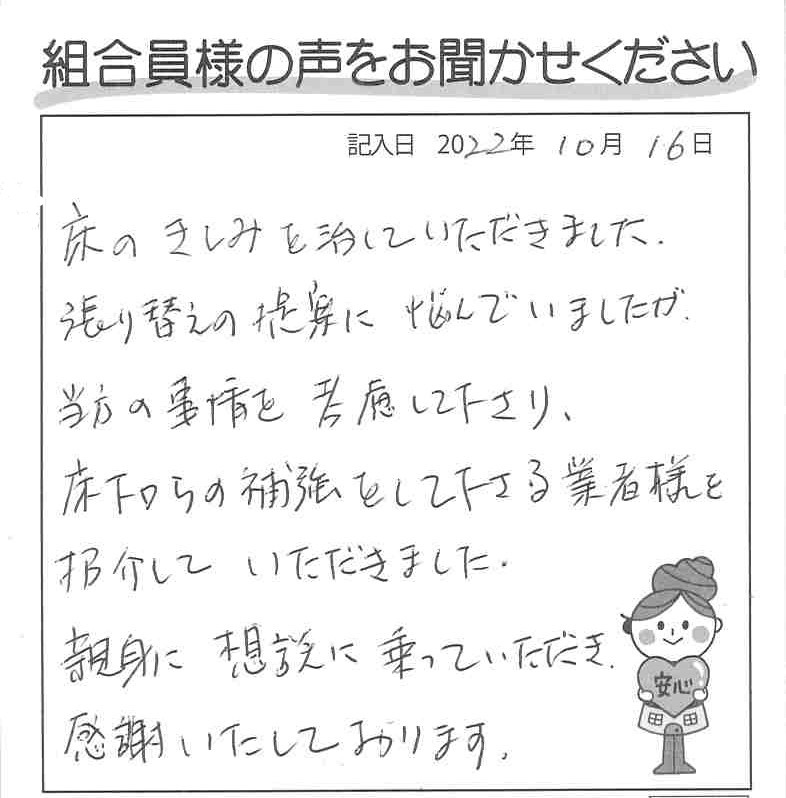 組合員様の声をお聞かせください
記入日 2022年 10月 16日
床の きしみを治していただきました.
張り替えの提案に 悩んでいましたが.
当方の事情を 考慮して下さり、
床下からの補強をして下さる業者様を
招介して いただきました.
親身に 想談に 乗っていただき.
感謝いたしております.
安心